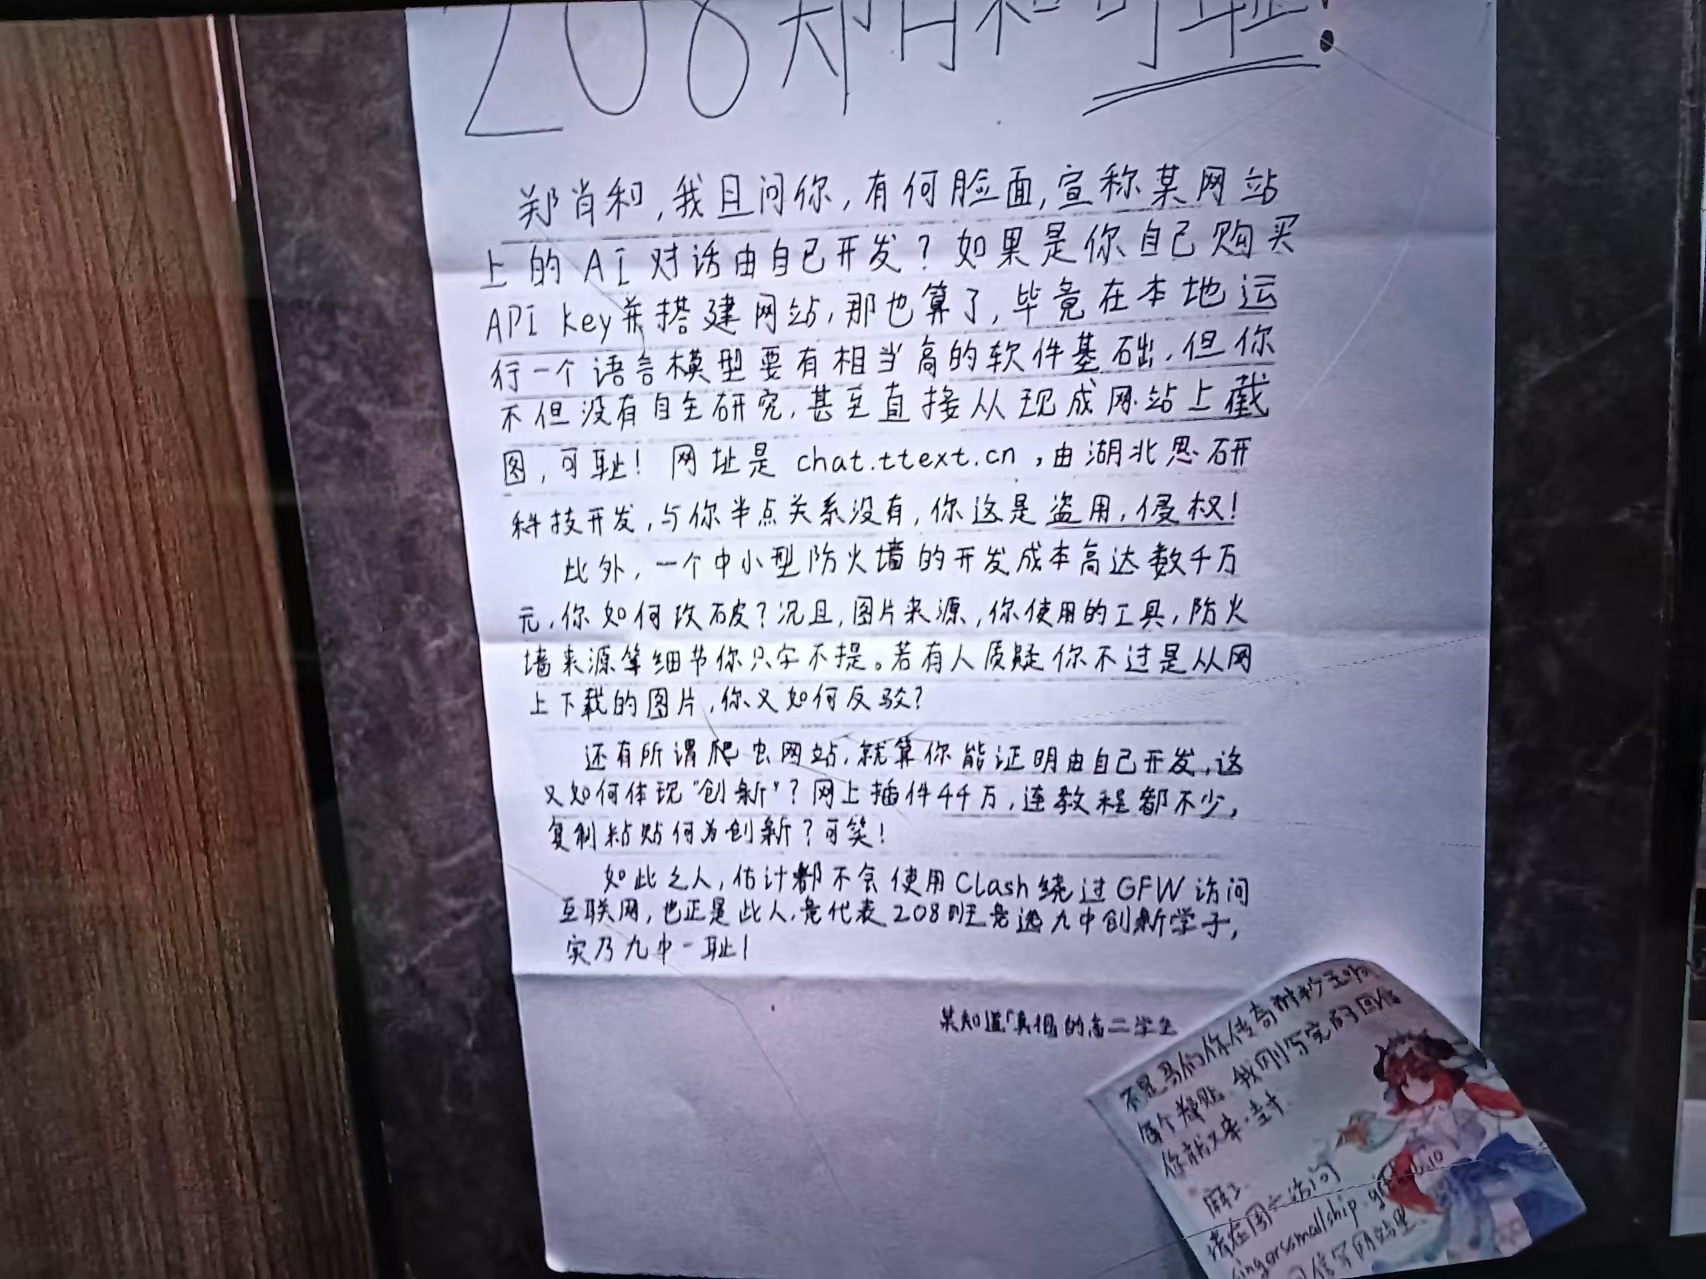 208郑肖和可耻!
郑肖和,我且问你,有何脸面,宣称某网站
上的AI对话由自己开发?如果是你自己购买
API Key并搭建网站,那也算了,毕竟在本地运
行一个语言模型要有相当高的软件基础,但你
不但没有自主研究,甚至直接从现成网站上截
图,可耻!网址是 chat.ttext.cn,由湖北思研
科技开发,与你半点关系没有,你这是盗用,侵权!
此外,一个中小型防火墙的开发成本高达数千万
元,你如何攻破?况且,图片来源,你使用的工具,防火
墙来源等细节你只字不提。若有人质疑你不过是从网
上下载的图片,你又如何反驳?
还有所谓爬虫网站,就算你能证明由自己开发,这
又如何体现"创新"?网上插件千千万,连教程都不少,
复制粘贴何为创新?可笑!
如此之人,估计都不会使用Clash绕过GFW访问
互联网,也正是此人,竟代表208班竞选九中创新学子,
实乃九中一耻!
某知道真相的高二学生
不是哥们你传奇
我刚写完的回信
你就又来一封
请在周六访问
smallship.github.io